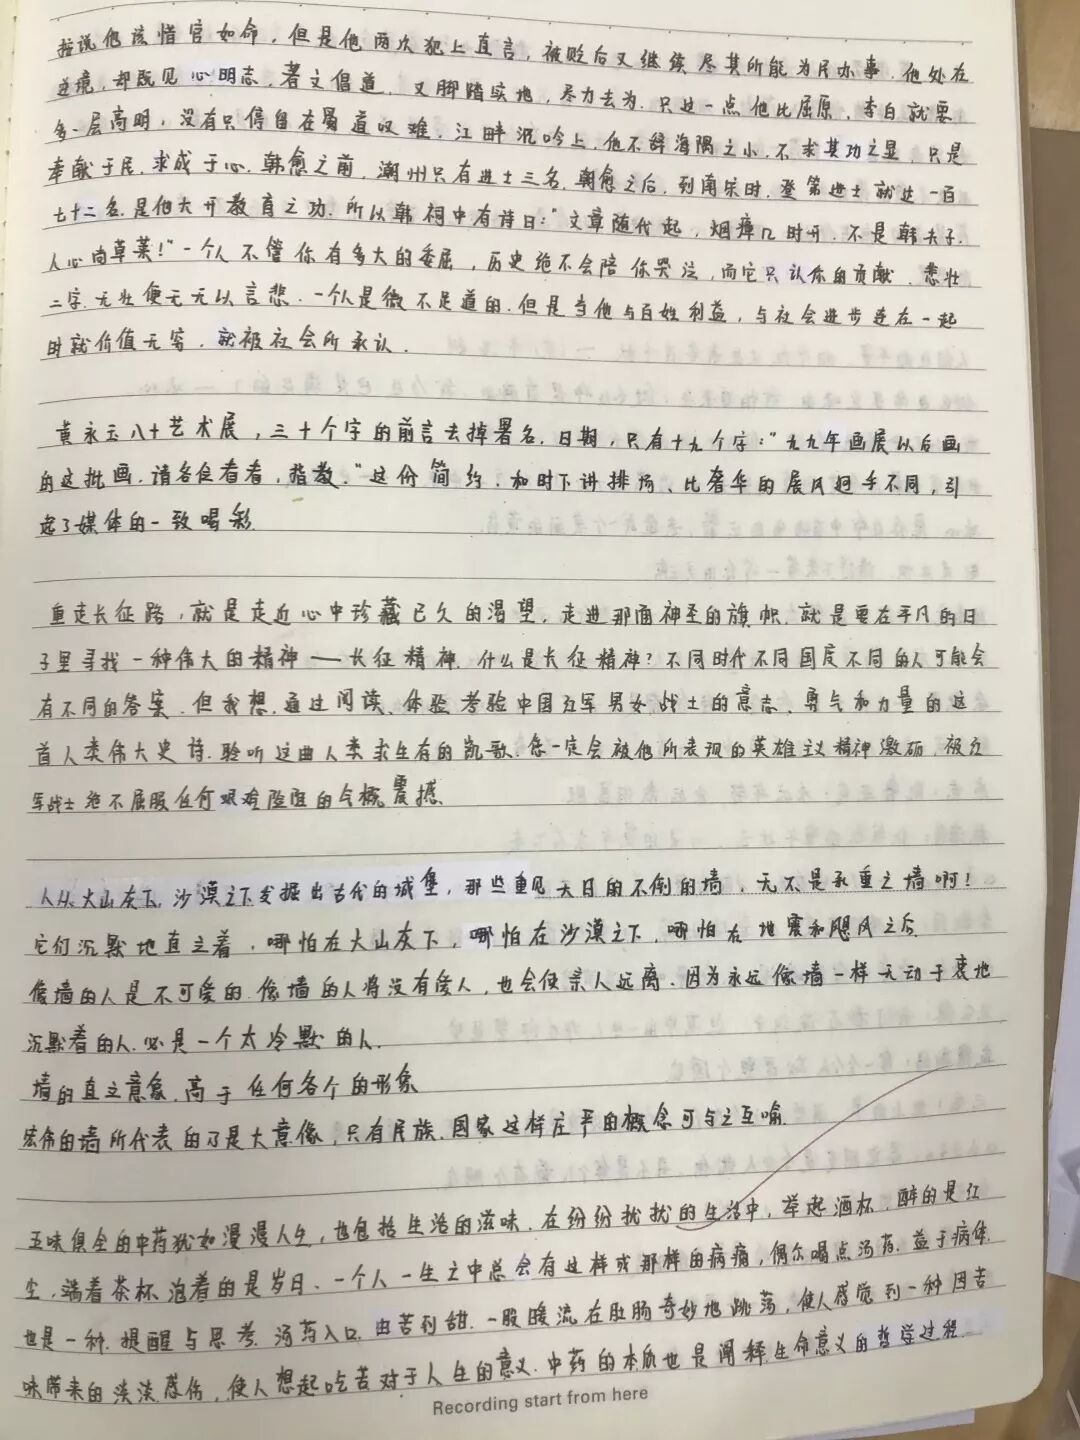 按说他该惜官如命，但是他两次犯上直言，被贬后又继续尽其所能为民办事．他处在
逆境，却既见心明志，著文倡道．又脚踏实地，尽力去为．只这一点他比屈原，李白就要
多一层高明，没有只停留在蜀道叹难，江畔沉吟上．他不辞海隅之小．不求其功之显．只是
奉献于民．求成于心．韩愈之前，潮州只有进士三名．韩愈之后，到南宋时．登第进士就达一百
七十二名．是他大开教育之功．所以韩祠中有诗曰：“文章随代起，烟瘴几时开．不是韩夫子．
人心尚草莱！”一个人不管你有多大的委屈，历史绝不会陪你哭泣，而它只认你的贡献．悲壮
二字．无壮便无无以言悲．一个人是微不足道的．但是当他与百姓利益，与社会进步连在一起
时就价值无穷．就被社会所承认．
黄永玉八十艺术展，三十个字的前言去掉署名．日期，只有十九个字：“九九年画展以后画
的这批画．请各位看看，指教．”这份简约．和时下讲排场、比奢华的展风迥乎不同，引
起了媒体的一致喝彩
重走长征路，就是走近心中珍藏已久的渴望．走进那面神圣的旗帜．就是要在平凡的日
子里寻找一种伟大的精神——长征精神．什么是长征精神？不同时代不同国度不同的人可能会
有不同的答案．但我想．通过阅读、体验考验中国红军男女战士的意志、勇气和力量的这
首人类伟大史诗．聆听这曲人类求生存的凯歌．您一定会被他所表现的英雄主义精神激砺．被红
军战士绝不屈服任何艰难险阻的气概震撼．
人从火山灰下．沙漠之下发掘出古代的城堡，那些重见天日的不倒的墙，无不是承重之墙啊！
它们沉默地直立着，哪怕在火山灰下，哪怕在沙漠之下．哪怕在地震和飓风之后
像墙的人是不可爱的．像墙的人将没有爱人，也会使亲人远离．因为永远像墙一样无动于衷地
沉默着的人．必是一个太冷默的人．
墙的直立意象．高于任何各个的形象
宏伟的墙所代表的乃是大意像，只有民族．国家这样庄严的概念可与之互喻．
五味俱全的中药犹如漫漫人生，也包括生活的滋味．在纷纷扰扰的生活中，举起酒杯．醉的是红
尘．端着茶杯．泡着的是岁月．一个人一生之中总会有这样或那样的病痛，偶尔喝点汤药．益于病体．
也是一种．提醒与思考．汤药入口．由苦到甜．一股暖流在肚肠奇妙地跳荡，使人感觉到一种因苦
味带来的淡淡感伤，使人想起吃苦对于人生的意义．中药的本质也是阐释生命意义的哲学过程．
Recording start from here